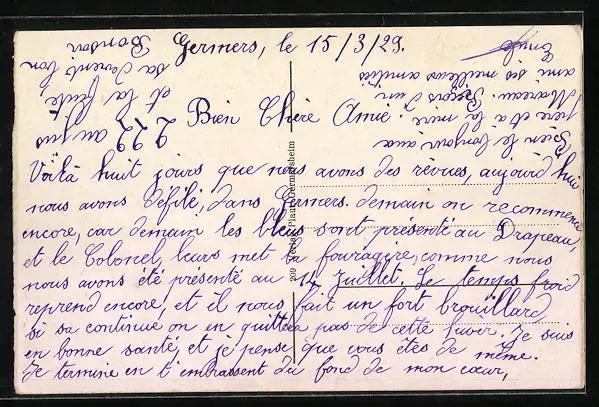 Germers, le 15/3/29.
Bien Chère Amie.
Voilà huit jours que nous avons des rêvues, aujourd'hui
nous avons défilé, dans Germers. demain on recommence
encore, car demain les bleus sont présenté au Drapeau,
et le Colonel, leurs met la fouragère, comme nous
nous avons été présenté au 14 Juillet. Le temps froid
reprend encore, et il nous fait un fort brouillard,
si sa continue on en quittera pas de cette hiver. Je suis
en bonne santé, et je pense que vous êtes de même.
Je termine en t'embrassent du fond de mon cœur,
Bien le bonjour aux
père et a la mère.
Marceau. Reçois d'un
ami ses meilleurs amitiés
Emile
222 au jus
et la fuite
sa devient bon
Bonsoir
209 Verlag Blaut Germersheim